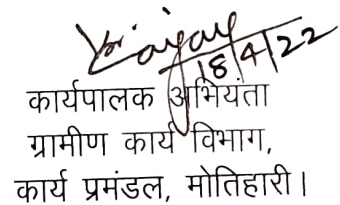 18/4/22
कार्यपालक अभियंता
ग्रामीण कार्य विभाग,
कार्य प्रमंडल, मोतिहारी।